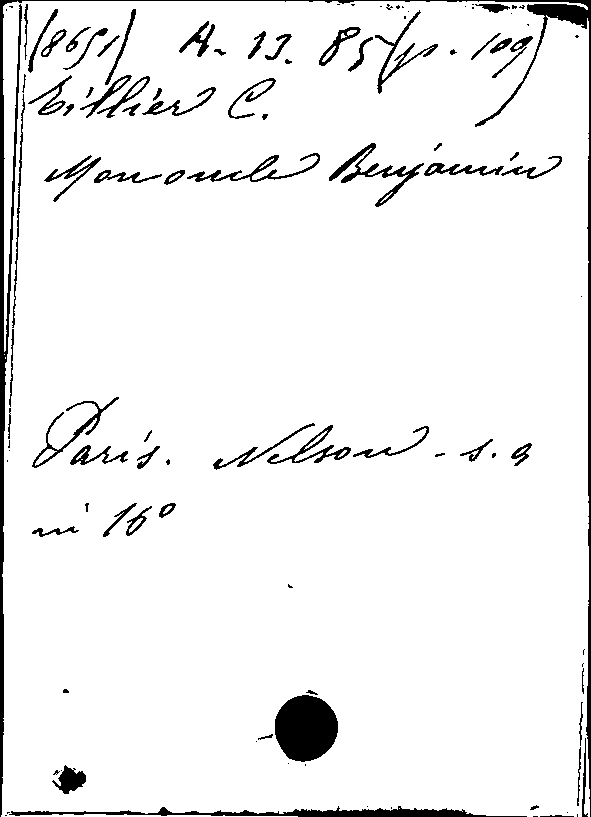 (8651) A. 13. 85 (p. 109)
Tillier C.
Mon oncle Benjamin
Paris. Nelson - s. a
in 16º